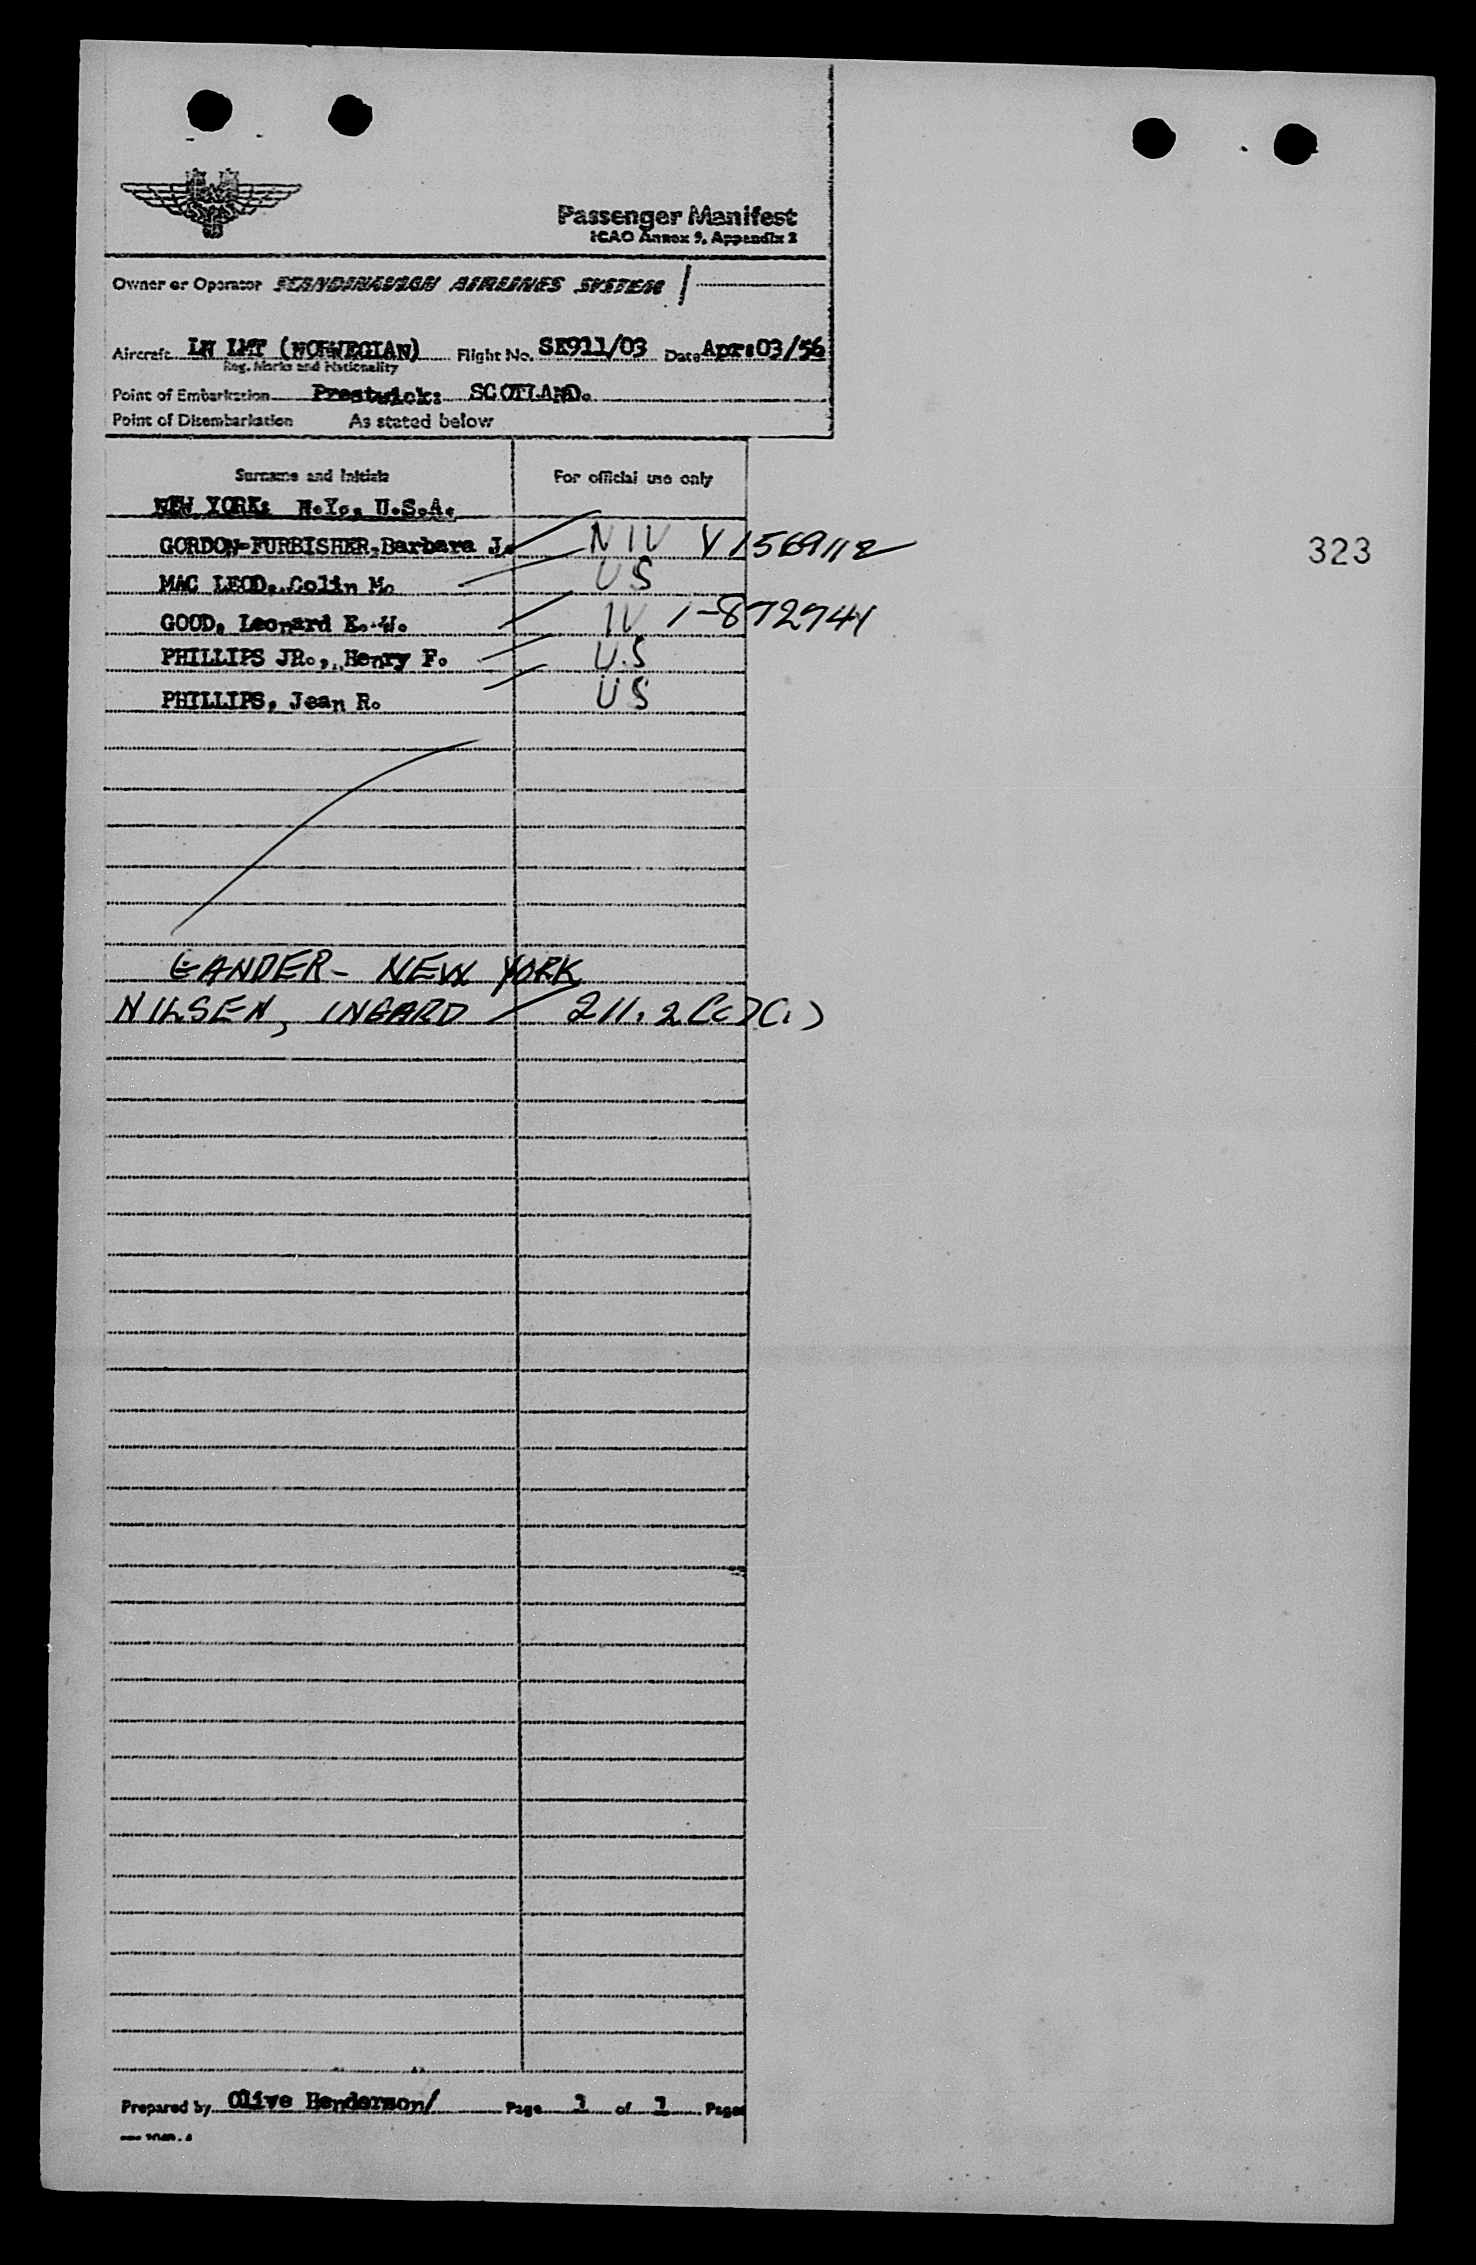 Passenger Manifest
ICAO Annex 9, Appendix 2
Owner or Operator SCANDINAVIAN AIRLINES SYSTEM
Aircraft LN LMT (NORWEGIAN) Flight No. SK911/03 Date Apr:03/56
Reg. Marks and Nationality
Point of Embarkation Prestwick: SCOTLAND.
Point of Disembarkation As stated below
Surname and Initials For official use only
NEW YORK: N.Y., U.S.A.
GORDON-FURBISHER,Barbara J. NIV V1569112
323
MAC LEOD, Colin M. US
GOOD, Leonard E. W. IV 1-872741
PHILLIPS JR., Henry F. U.S
PHILLIPS, Jean R. US
GANDER - NEW YORK
NILSEN, INGARD 211.2(c)(1)
Prepared by Olive Henderson/ Page 1 of 1 Pages